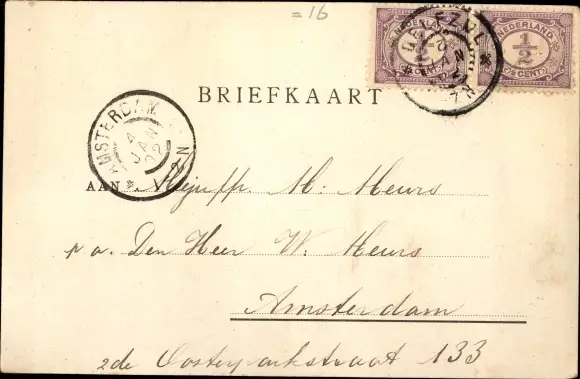 =16
NEDERLAND NEDERLAND
1/2 1/2
CENT 1/2 CENT
BRIEFKAART
AMSTERDAM
4
JAN
02
12 N
AAN Mejuff. M. Meurs
p.a. Den Heer W. Meurs
Amsterdam
2de Oosterparkstraat 133